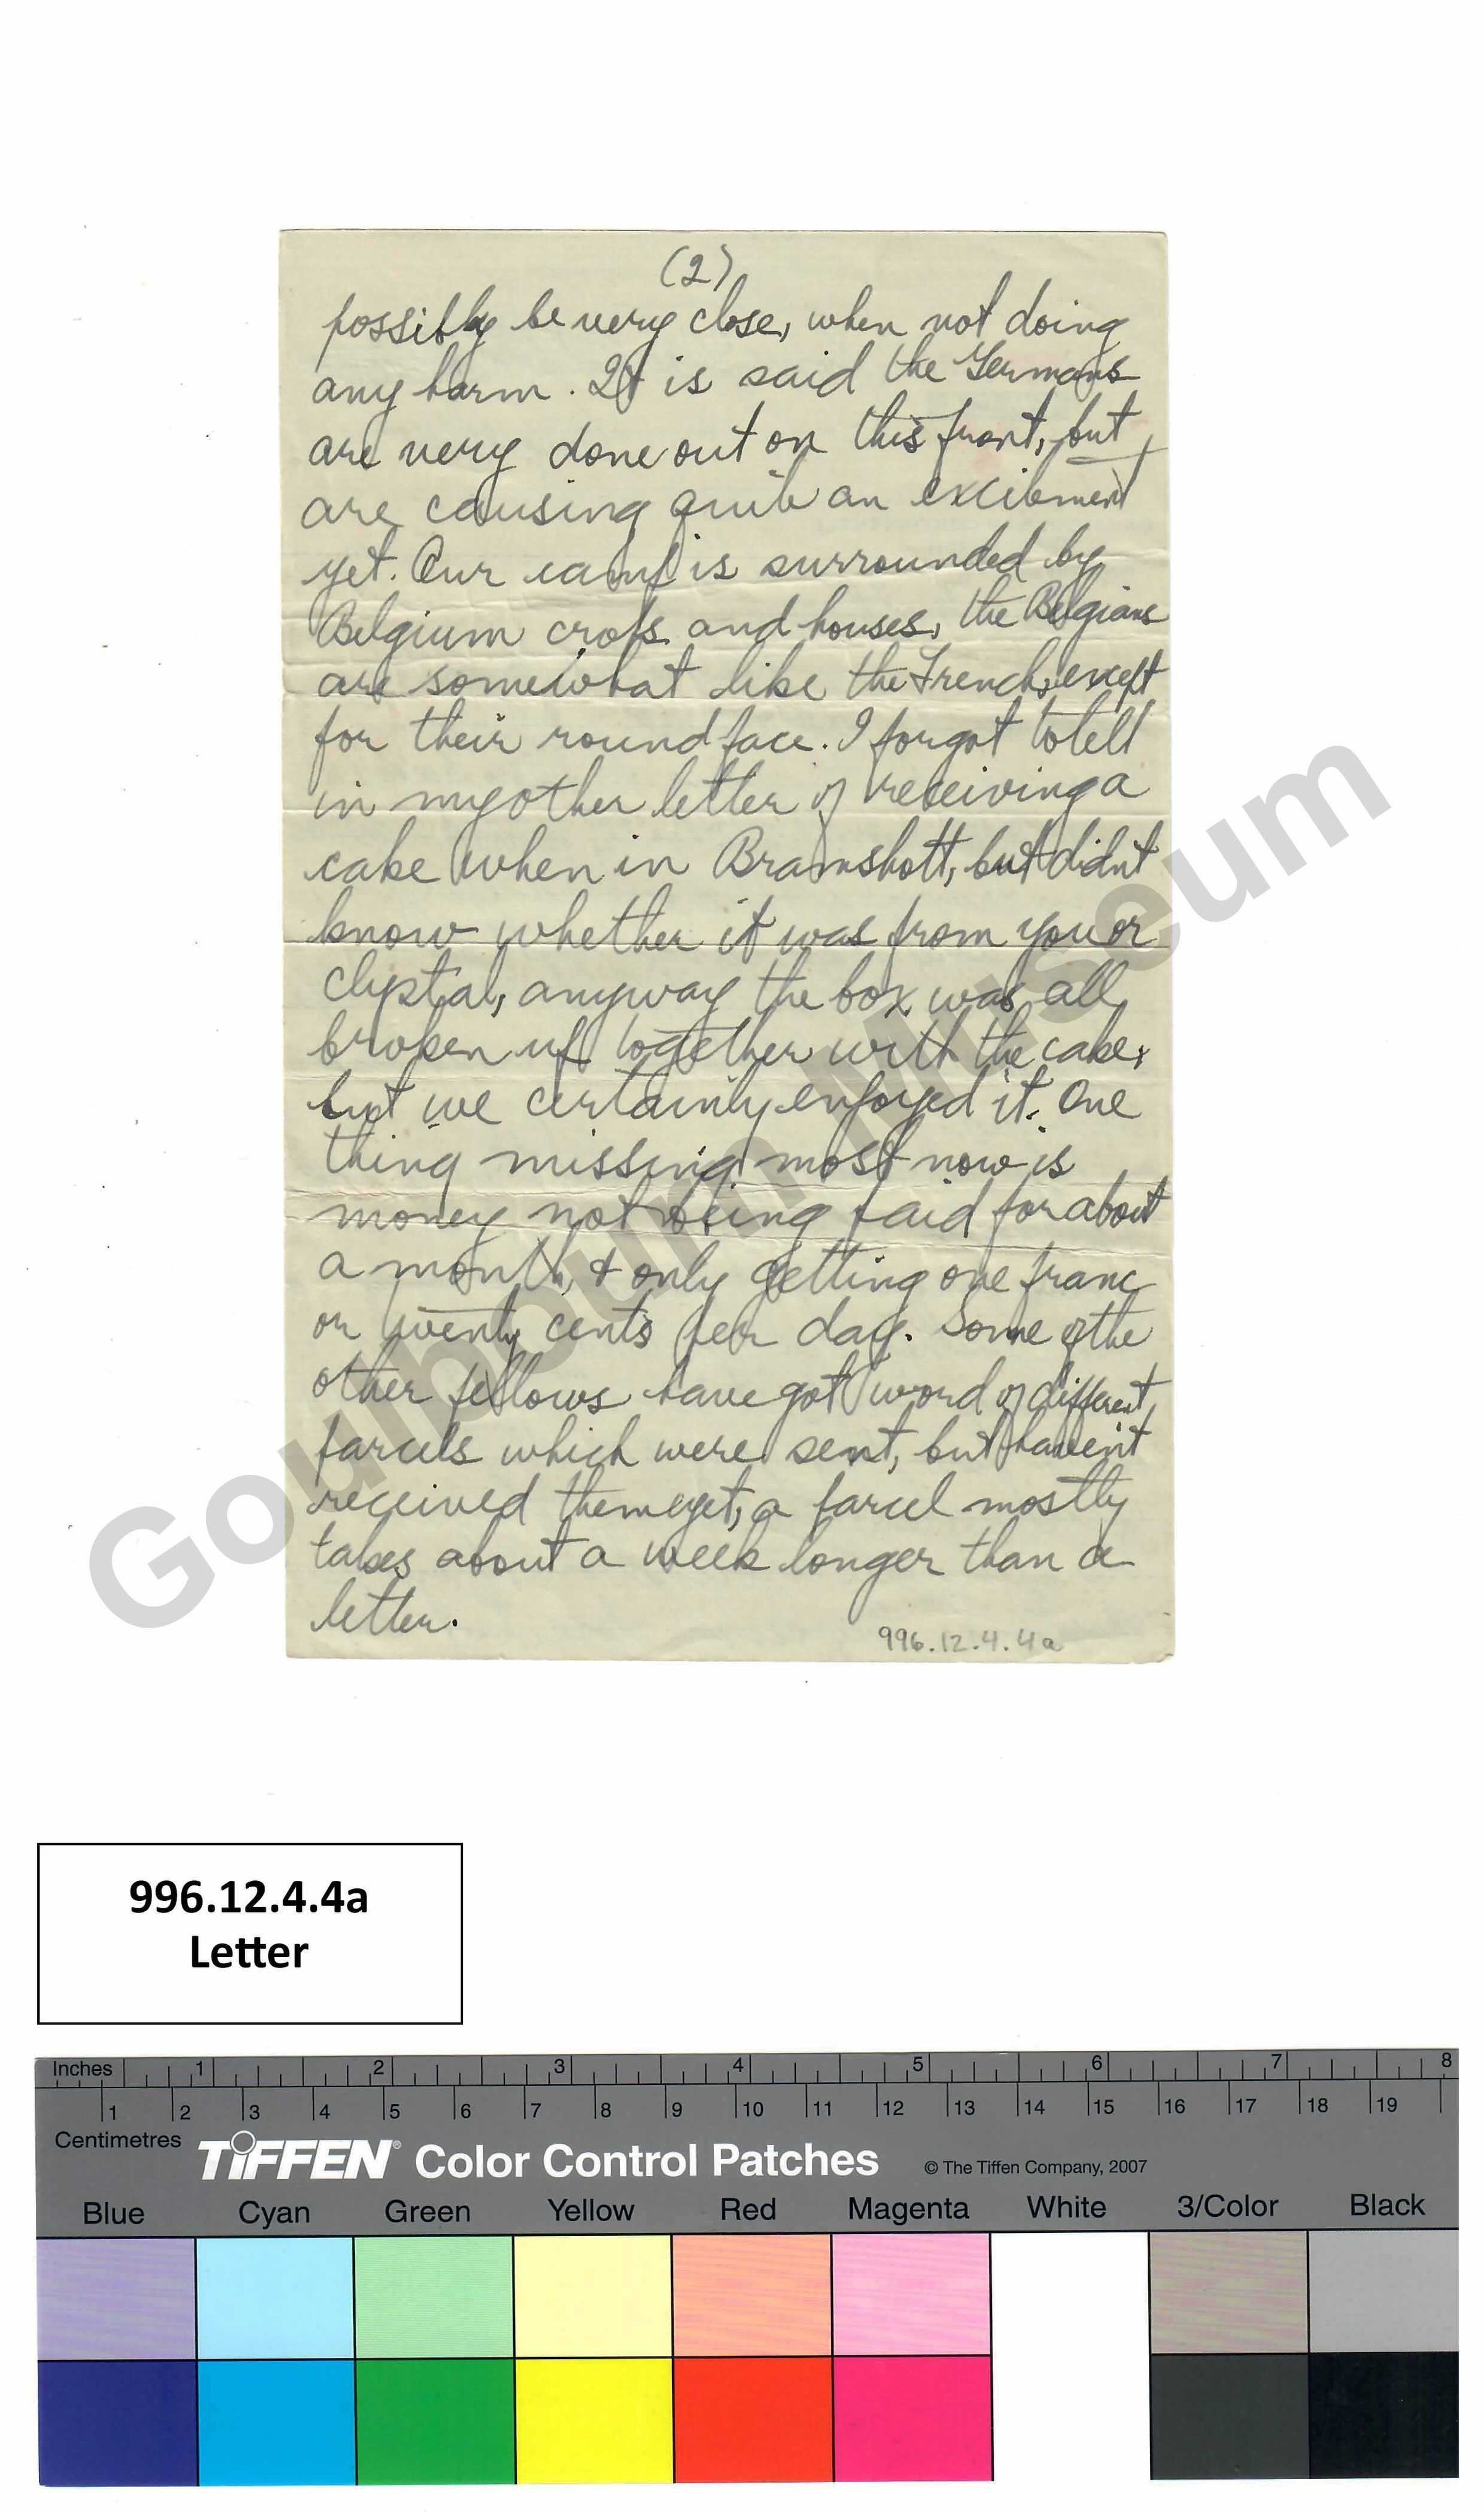 (2)
possibly be very close, when not doing
any harm. It is said the Germans
are very done out on this front, but
are causing quite an excitement
yet. Our camp is surrounded by
Belgium crops and houses, the Belgians
are somewhat like the French, except
for their round face. I forgot to tell
in my other letter of receiving a
cake when in Bramshott, but didnt
know whether it was from you or
anyway the box was all
broken up together with the cake,
but we certainly enjoyed it. One
thing missing most now is
money not being paid for about
a month, & only getting one franc
or twenty cents per day. Some of the
other fellows have got word of different
parcels which were sent, but haven't
received them yet, a parcel mostly
takes about a week longer than a
letter.
996.12.4.4a
Goulbourn Museum
996.12.4.4a
Letter
Inches 1 2 3 4 5 6 7 8
1 2 3 4 5 6 7 8 9 10 11 12 13 14 15 16 17 18 19
Centimetres
TIFFEN® Color Control Patches © The Tiffen Company, 2007
Blue Cyan Green Yellow Red Magenta White 3/Color Black